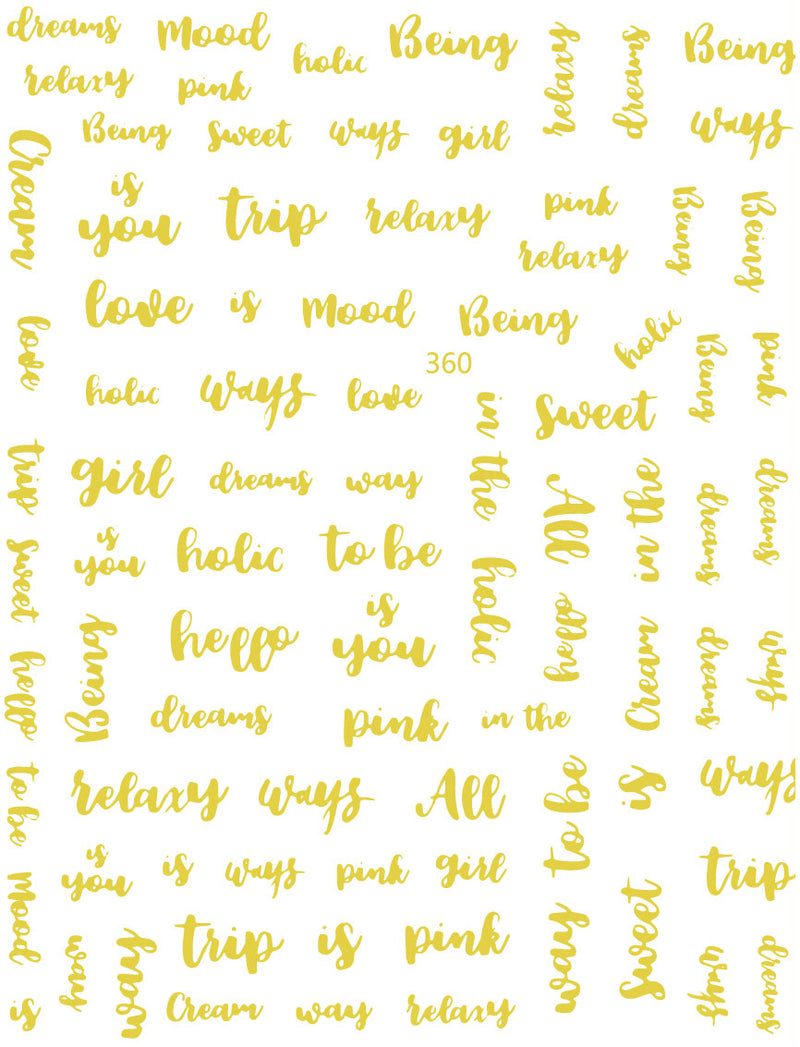 dreams
Mood
holic
Being
relaxy
dreams
Being
relaxy
pink
Being
sweet
ways
girl
ways
Cream
is
you
trip
relaxy
pink
relaxy
Being
Being
love
is
Mood
Being
love
holic
Being
pink
360
holic
ways
love
in the
sweet
trip
girl
dreams
way
All
in the
dreams
dreams
sweet
is
you
holic
to be
holic
hello
Being
hello
is
you
hello
Cream
dreams
ways
dreams
pink
in the
to be
relaxy
ways
All
way to be
is
ways
is
you
is
ways
pink
girl
sweet
trip
Mood
way
way
trip
is
pink
ways
dreams
is
Cream
way
relaxy